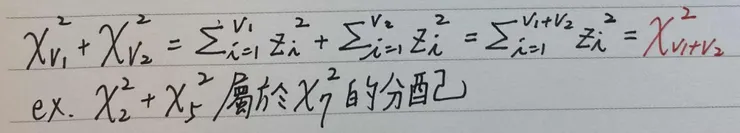 χ²_{V₁} + χ²_{V₂} = Σ_{i=1}^{V₁} Z_i² + Σ_{i=1}^{V₂} Z_i² = Σ_{i=1}^{V₁+V₂} Z_i² = χ²_{V₁+V₂}
ex. χ₂² + χ₅² 屬於 χ₇² 的分配